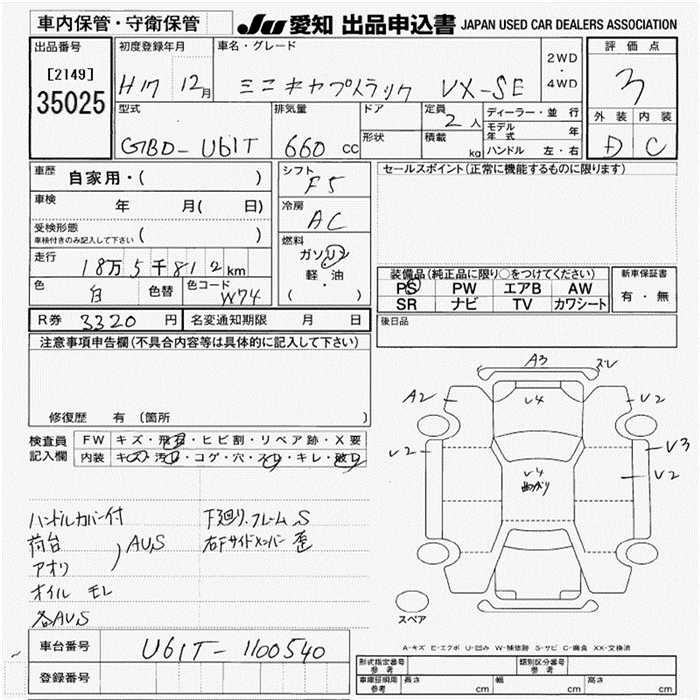 車内保管・守衛保管 JU 愛知 出品申込書 JAPAN USED CAR DEALERS ASSOCIATION
出品番号 初度登録年月 車名・グレード 2WD・4WD 評価点
[2149] 35025 H17 12月 ミニキャブトラック VX-SE 3
型式 排気量 ドア 定員 2人 ディーラー・並行 外装 内装
GBD-U61T 660cc 形状 積載 kg モデル年式 年 D C
ハンドル 左・右
車歴 自家用・( ) シフト F5 セールスポイント(正常に機能するものに限ります)
車検 年 月( 日) 冷房 AC
受検形態 車検付きのみ記入して下さい ( ) 燃料 ガソリン
走行 18万5千812km 軽・油
装備品(純正品に限り○をつけてください) 新車保証書
色 白 色替 色コード W74 ( ・ ) PS PW エアB AW 有・無
SR ナビ TV カワシート
R券 3320円 名変通知期限 月 日 後日品
注意事項申告欄(不具合内容等は具体的に記入して下さい)
修復歴 有 (箇所 )
検査員記入欄 FW キズ・飛石・ヒビ割・リペア跡・X要
内装 キズ・汚れ・コゲ・穴・スレ・キレ・破レ
A3 スレ
A2 U4 U2
U2 U4 U3
U2
ハンドルカバー付 下廻り.フレームS
荷台 AUS 右Fサイドメンバー歪
アオリ
オイル モレ
各AUS
スペア
A-キズ E-エクボ U-凹み W-補修跡 S-サビ C-腐食 XX-交換済
車台番号 U61T-1100540
登録番号
形式指定番号 参考 類別区分番号 参考
車庫証明用 参考 長さ cm 幅 cm 高さ cm